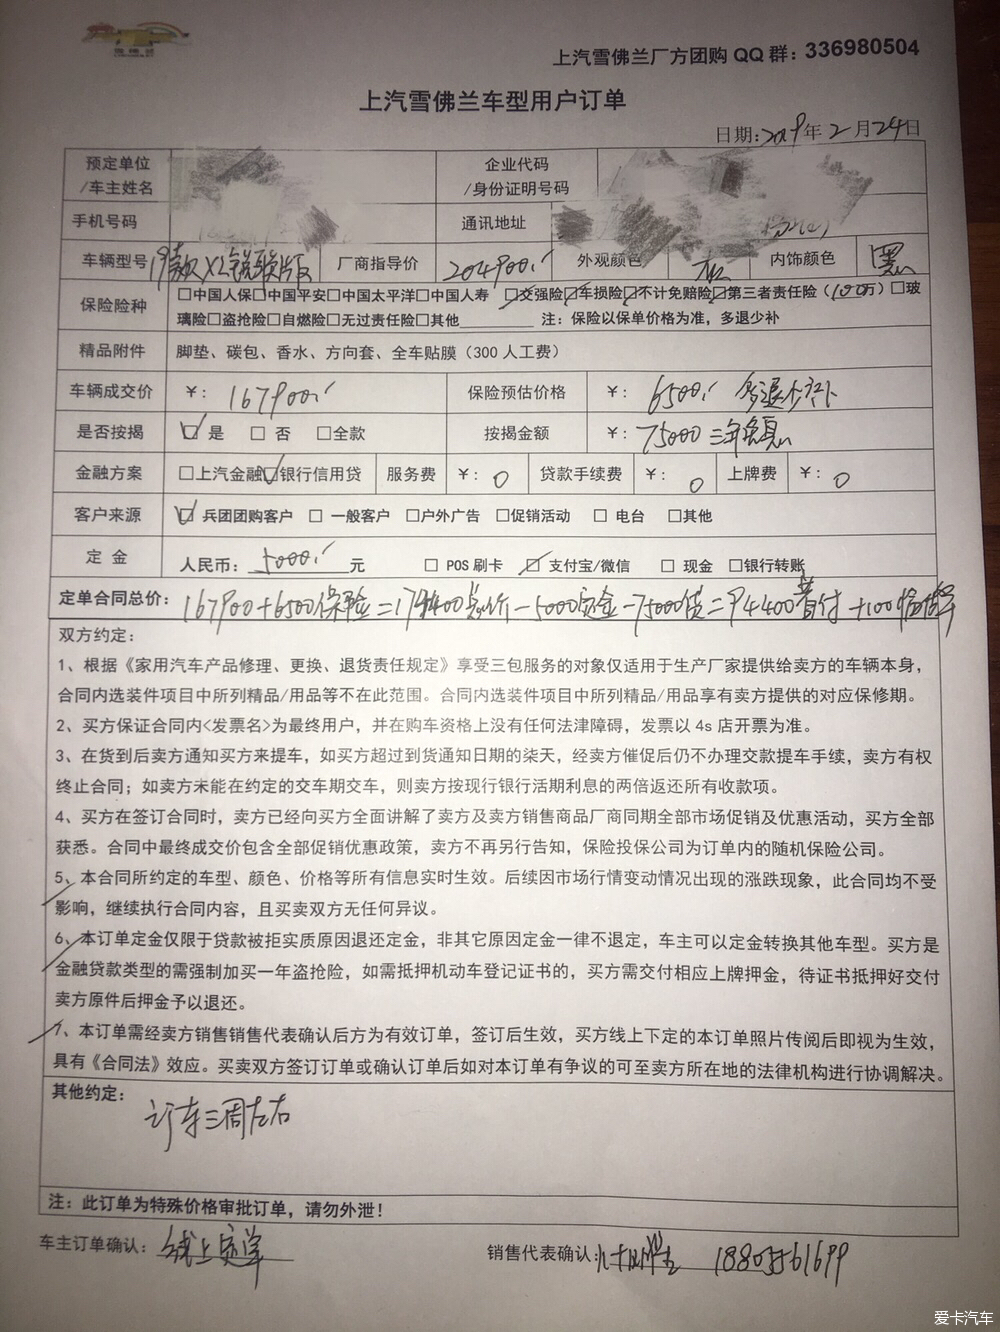 雪佛兰
上汽雪佛兰厂方团购 QQ 群：336980504
上汽雪佛兰车型用户订单
日期：2019年 2 月 24日
预定单位/车主姓名 企业代码/身份证明号码
手机号码 通讯地址
车辆型号 19款 XL 锐联版 厂商指导价 204900 外观颜色 内饰颜色 黑
保险险种 □中国人保□中国平安□中国太平洋□中国人寿 ☑交强险☑车损险☑不计免赔险☑第三者责任险（100万）□玻
璃险□盗抢险□自燃险□无过责任险□其他 注：保险以保单价格为准，多退少补
精品附件 脚垫、碳包、香水、方向套、全车贴膜（300 人工费）
车辆成交价 ￥：167900 保险预估价格 ￥：6500 多退少补
是否按揭 ☑ 是 □ 否 □全款 按揭金额 ￥：75000 三年免息
金融方案 □上汽金融☑银行信用贷 服务费 ￥：0 贷款手续费 ￥：0 上牌费 ￥：0
客户来源 ☑ 兵团团购客户 □ 一般客户 □户外广告 □促销活动 □ 电台 □其他
定 金 人民币：5000 元 □ POS 刷卡 ☑ 支付宝/微信 □ 现金 □银行转账
定单合同总价：167900+6500保险=174400总价-5000定金-75000贷=94400首付+100临牌
双方约定：
1、根据《家用汽车产品修理、更换、退货责任规定》享受三包服务的对象仅适用于生产厂家提供给卖方的车辆本身，
合同内选装件项目中所列精品/用品等不在此范围。合同内选装件项目中所列精品/用品享有卖方提供的对应保修期。
2、买方保证合同内<发票名>为最终用户，并在购车资格上没有任何法津障碍，发票以 4s 店开票为准。
3、在货到后卖方通知买方来提车，如买方超过到货通知日期的柒天，经卖方催促后仍不办理交款提车手续，卖方有权
终止合同；如卖方未能在约定的交车期交车，则卖方按现行银行活期利息的两倍返还所有收款项。
4、买方在签订合同时，卖方已经向买方全面讲解了卖方及卖方销售商品厂商同期全部市场促销及优惠活动，买方全部
获悉。合同中最终成交价包含全部促销优惠政策，卖方不再另行告知，保险投保公司为订单内的随机保险公司。
5、本合同所约定的车型、颜色、价格等所有信息实时生效。后续因市场行情变动情况出现的涨跌现象，此合同均不受
影响，继续执行合同内容，且买卖双方无任何异议。
6、本订单定金仅限于贷款被拒实质原因退还定金，非其它原因定金一律不退定，车主可以定金转换其他车型。买方是
金融贷款类型的需强制加买一年盗抢险，如需抵押机动车登记证书的，买方需交付相应上牌押金，待证书抵押好交付
卖方原件后押金予以退还。
7、本订单需经卖方销售销售代表确认后方为有效订单，签订后生效，买方线上下定的本订单照片传阅后即视为生效，
具有《合同法》效应。买卖双方签订订单或确认订单后如对本订单有争议的可至卖方所在地的法律机构进行协调解决。
其他约定：
订车三周左右
注：此订单为特殊价格审批订单，请勿外泄！
车主订单确认：线上定单 销售代表确认： 18805561699
爱卡汽车